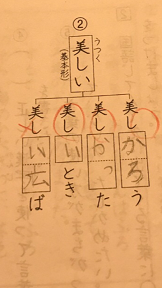 ②
うつく
美しい
(基本形)
美しかろう
美しかった
美しいとき
美しい広ば